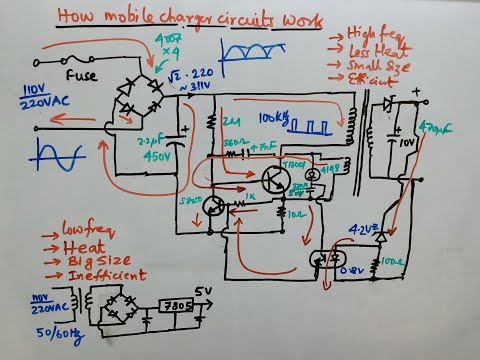 How mobile charger circuits work
4007
×4
Fuse
110V
220VAC
√2 · 220
~ 311V
2.2µF
450V
2M
560Ω
4.7nF
100KHz
13001
4148
S8050
1K
10Ω
→ High freq
→ Less Heat
→ Small Size
→ Efficient
10V
470µF
4.2V
100Ω
0.8V
→ Low freq
→ Heat
→ Big Size
→ Inefficient
110V
220VAC
50/60Hz
7805
5V